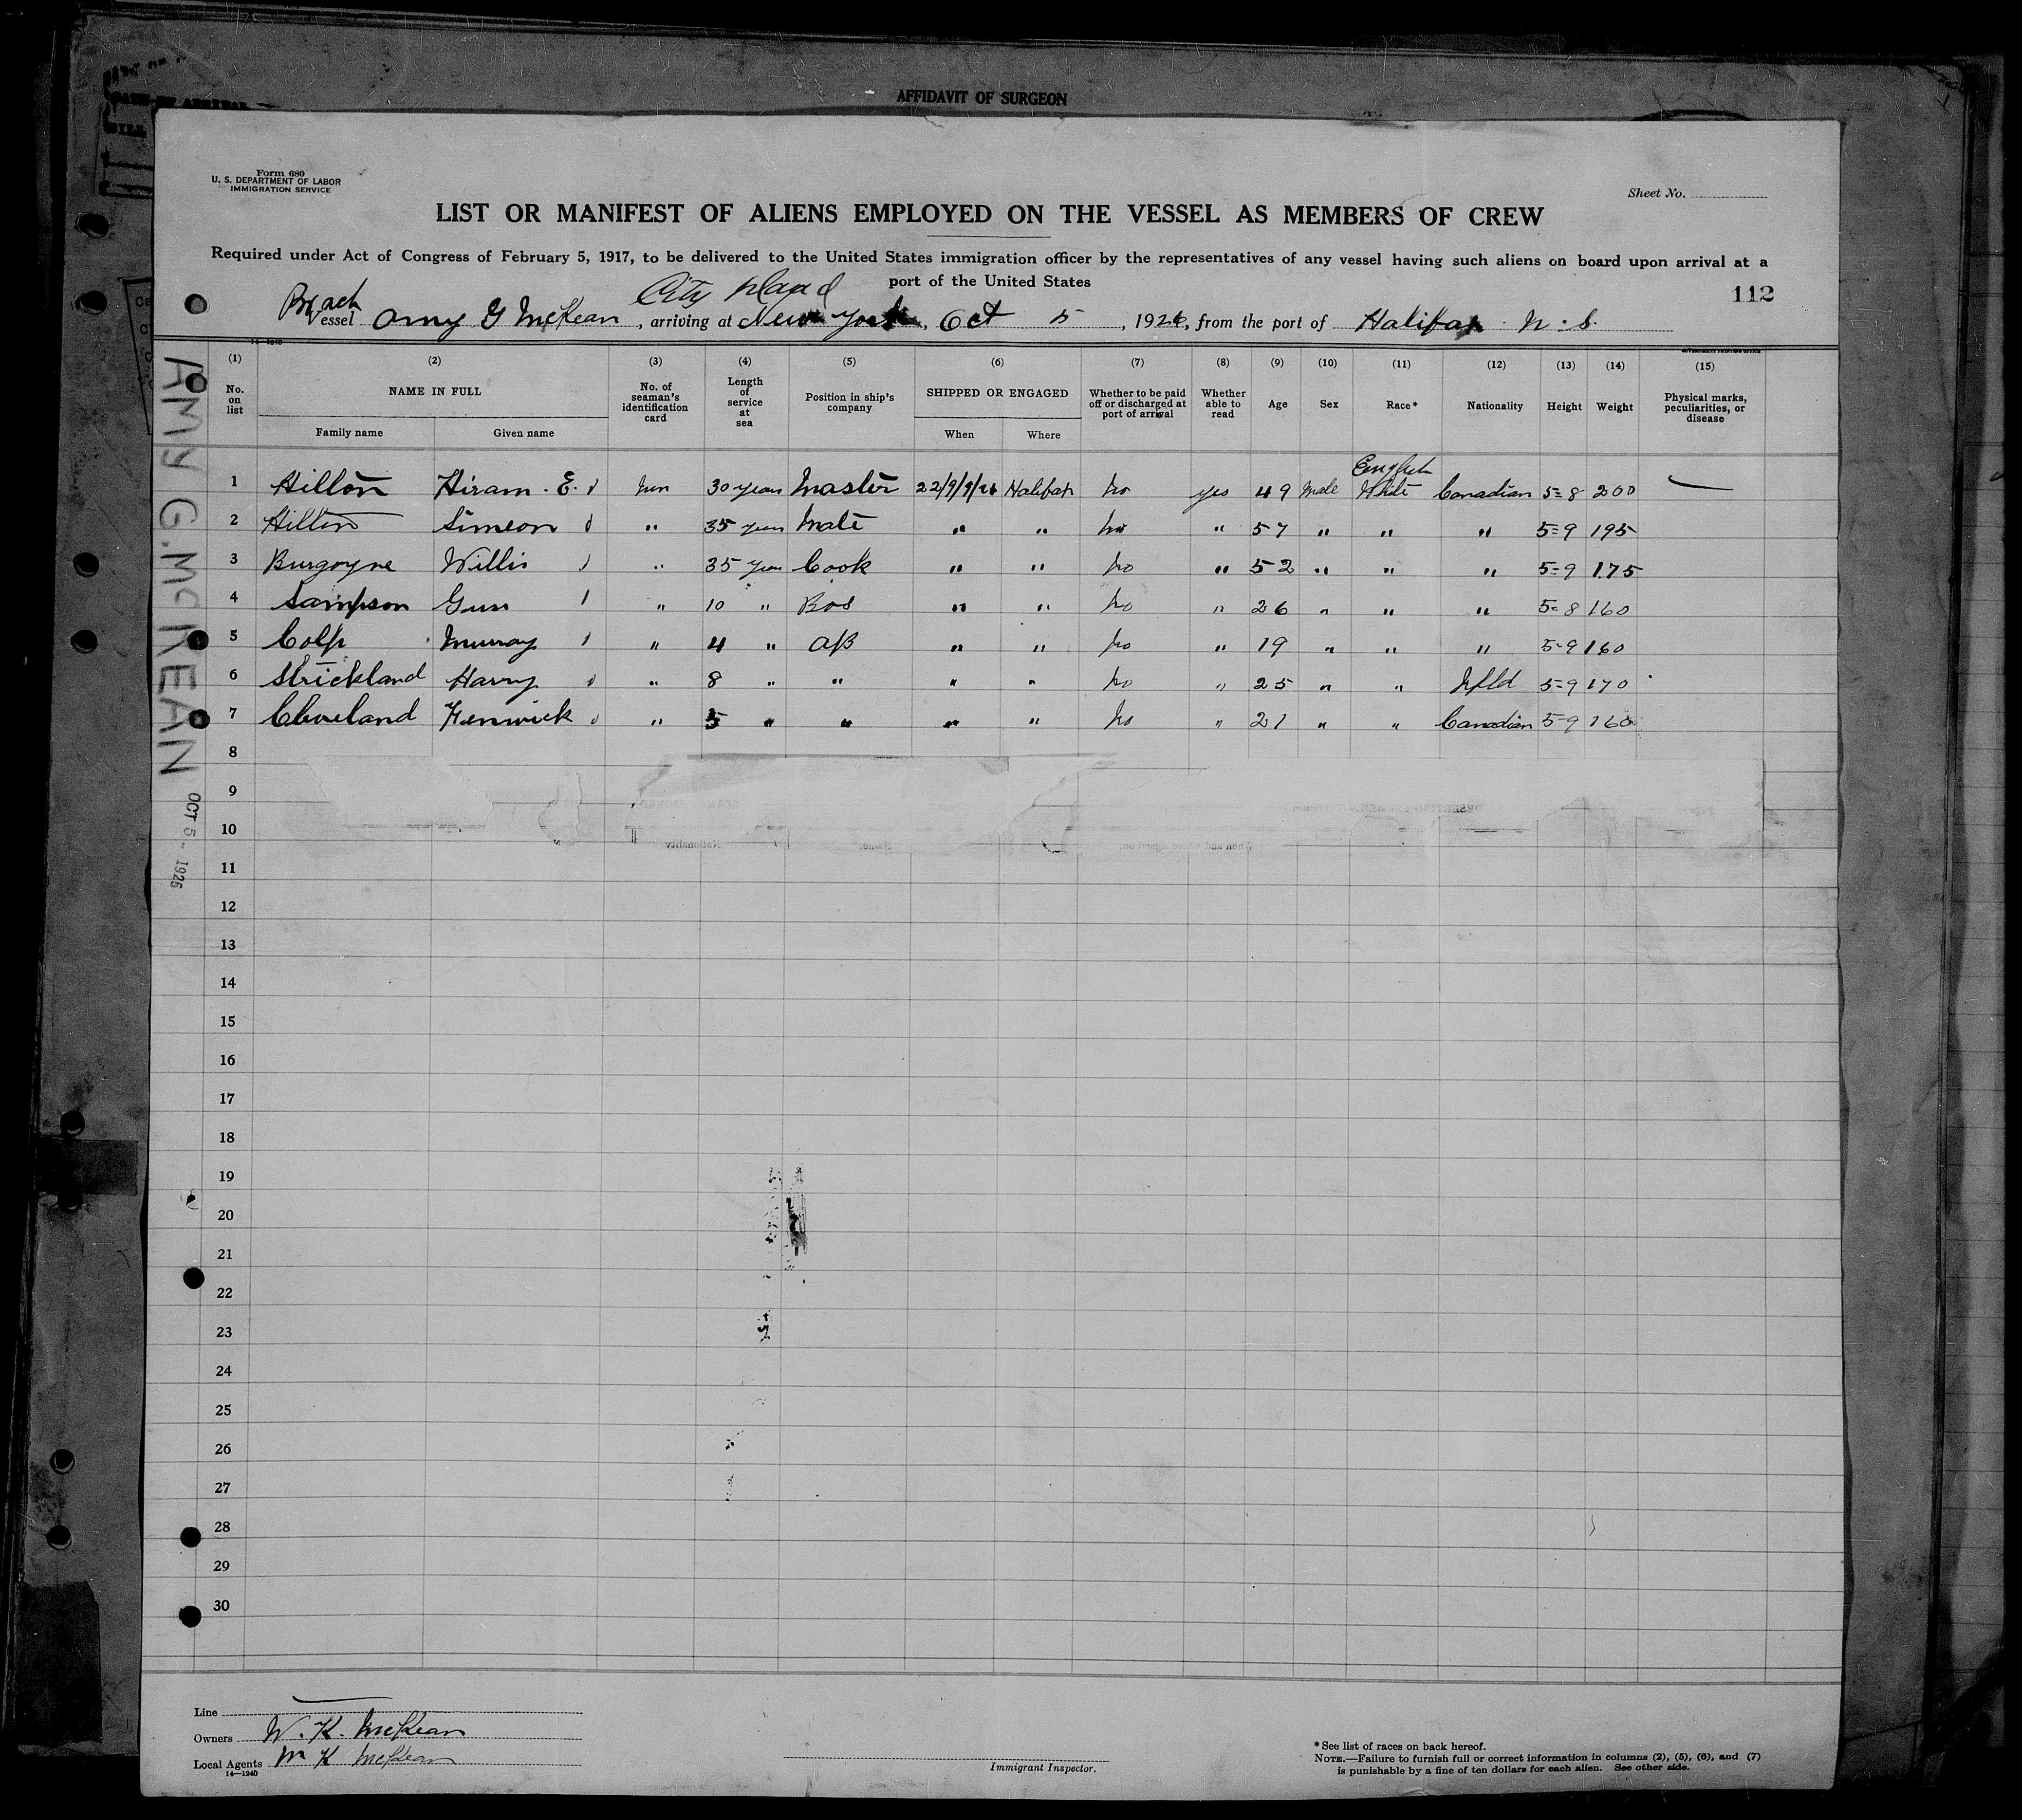 AFFIDAVIT OF SURGEON
Form 680
U. S. DEPARTMENT OF LABOR
IMMIGRATION SERVICE
Sheet No.
LIST OR MANIFEST OF ALIENS EMPLOYED ON THE VESSEL AS MEMBERS OF CREW
Required under Act of Congress of February 5, 1917, to be delivered to the United States immigration officer by the representatives of any vessel having such aliens on board upon arrival at a
port of the United States
City Island
112
Vessel Amy G McKean, arriving at New York, Oct 5, 1926, from the port of Halifax N.S.
(1) (2) (3) (4) (5) (6) (7) (8) (9) (10) (11) (12) (13) (14) (15)
No. on list NAME IN FULL No. of seaman's identification card Length of service at sea Position in ship's company SHIPPED OR ENGAGED Whether to be paid off or discharged at port of arrival Whether able to read Age Sex Race* Nationality Height Weight Physical marks, peculiarities, or disease
Family name Given name When Where
English
1 Hilton Hiram. E. 30 years Master 22/9/26 Halifax no yes 49 Male White Canadian 5=8 200
2 Hilton Simeon " 35 years Mate " " no " 57 " " " 5=9 195
3 Burgoyne Willis " 35 years Cook " " no " 52 " " " 5=9 175
4 Sampson " 10 " Bos " " no " 26 " " " 5=8 160
5 Colp Murray " 4 " AB " " no " 19 " " " 5-9 160
6 Strickland Harry " 8 " " " " no " 25 " " Nfld 5=9 170
7 Cleveland Fenwick " 5 " " " " no " 21 " " Canadian 5-9 160
8
9
10
11
12
13
14
15
16
17
18
19
20
21
22
23
24
25
26
27
28
29
30
AMY G. McKEAN
OCT 5 - 1926
Line
Owners W. K. McKean
Local Agents W K McKean
14—1240
Immigrant Inspector.
*See list of races on back hereof.
NOTE.—Failure to furnish full or correct information in columns (2), (5), (6), and (7)
is punishable by a fine of ten dollars for each alien. See other side.